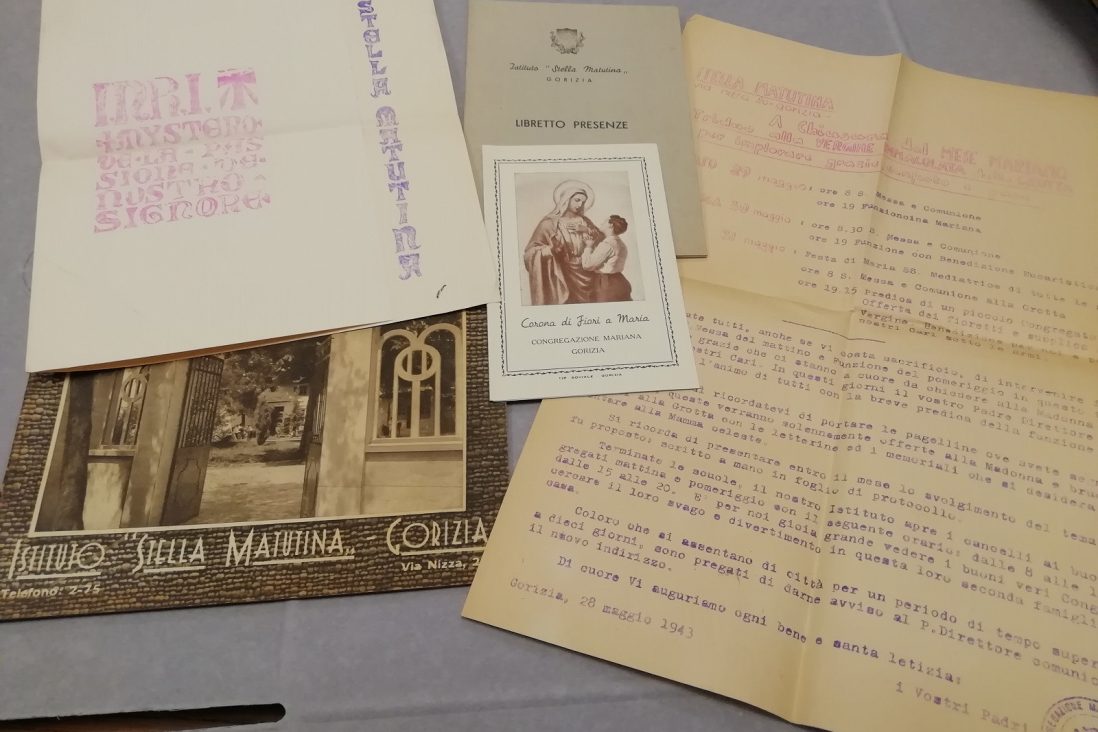 INRI
MYSTERO
DE·LA·PAS
SIONE·DE
NUSTHO
SIGNORE
STELLA MATUTINA
Istituto "Stella Matutina„
GORIZIA
LIBRETTO PRESENZE
Corona di Fiori a Maria
CONGREGAZIONE MARIANA
GORIZIA
TIP. SOCIALE - GORIZIA
ISTITUTO "STELLA MATUTINA„ GORIZIA
Via Nizza, 2
Telefono: 2-75
STELLA MATUTINA
A Chiusura del MESE MARIANO
Triduo alla VERGINE IMMACOLATA
per implorare grazie
29 maggio: ore 8 S. Messa e Comunione
ore 19 Funzioncina Mariana
maggio: ore 8.30 S. Messa e Comunione
ore 19 Funzione con Benedizione Eucaristic
maggio: Festa di Maria SS. Mediatrice di tutte le
ore 8 S. Messa e Comunione alla grotta
ore 19.15 Predica di un piccolo Congregat
Offerta dei Fioretti e supplica
Vergine Benedizione
nostri Cari sotto le armi
tutti, anche se vi costa sacrificio, di intervenire
Messa del mattino e Funzione del pomeriggio in questo
grazie che ci stanno a cuore da chiedere alla Madonna
Cari. In questi giorni il vostro Padre Direttore
l'animo di tutti con la breve predica della funzione
ricordatevi di portare le pagelline ove avete
queste verranno solennemente offerte alla Madonna e bruc
alla Grotta con le letterine ed i memoriali che si desidera
alla Mamma celeste.
Si ricorda di presentare entro il mese lo svolgimento del tema
proposto: scritto a mano in foglio di protocollo.
Terminate le scuole, il nostro Istituto apre i cancelli ai buo
gregati mattina e pomeriggio con il seguente orario: dalle 8 alle 1
dalle 15 alle 20. E' per noi gioia grande vedere i buoni veri Cong
cercare il loro svago e divertimento in questa loro seconda famigli
casa.
Coloro che si assentano di città per un periodo di tempo super
a dieci giorni, sono pregati di darne avviso al P. Direttore comunic
il nuovo indirizzo.
Di cuore Vi auguriamo ogni bene e santa letizia:
i Vostri Padri
Gorizia, 28 maggio 1943